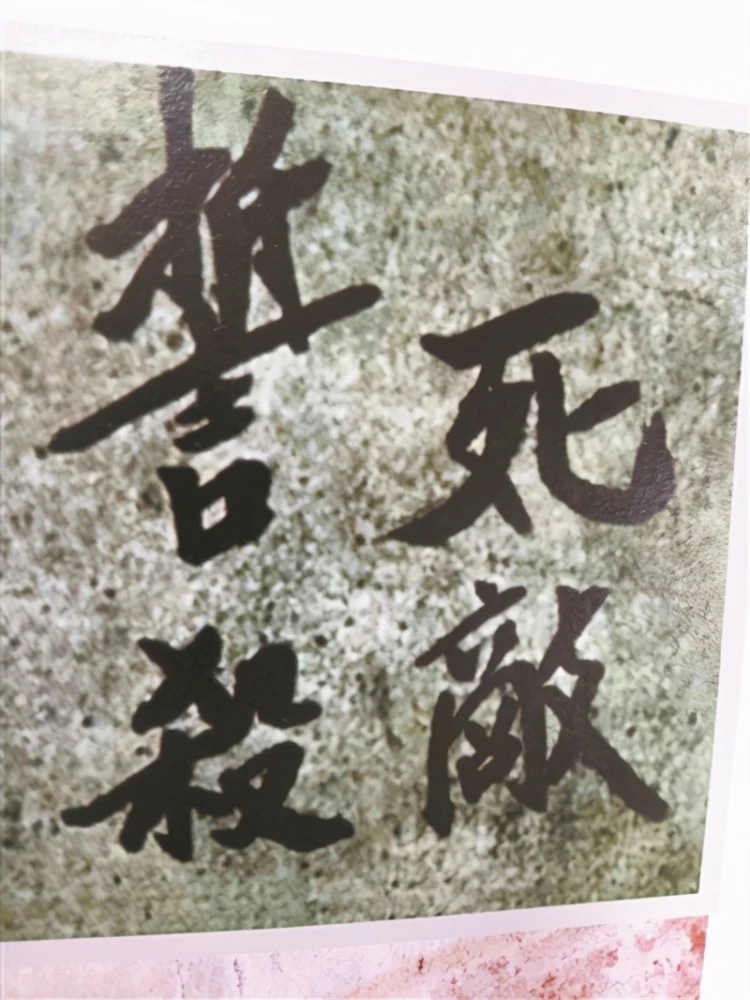 誓死
殺敵